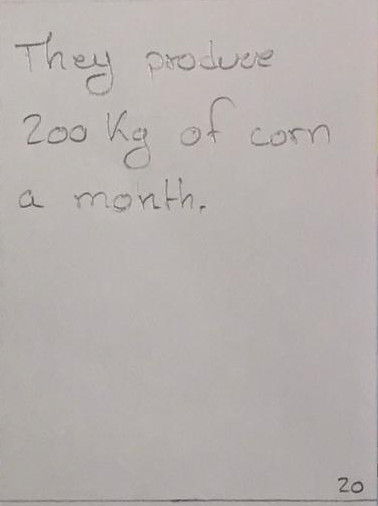 They produce
200 Kg of corn
a month.
20